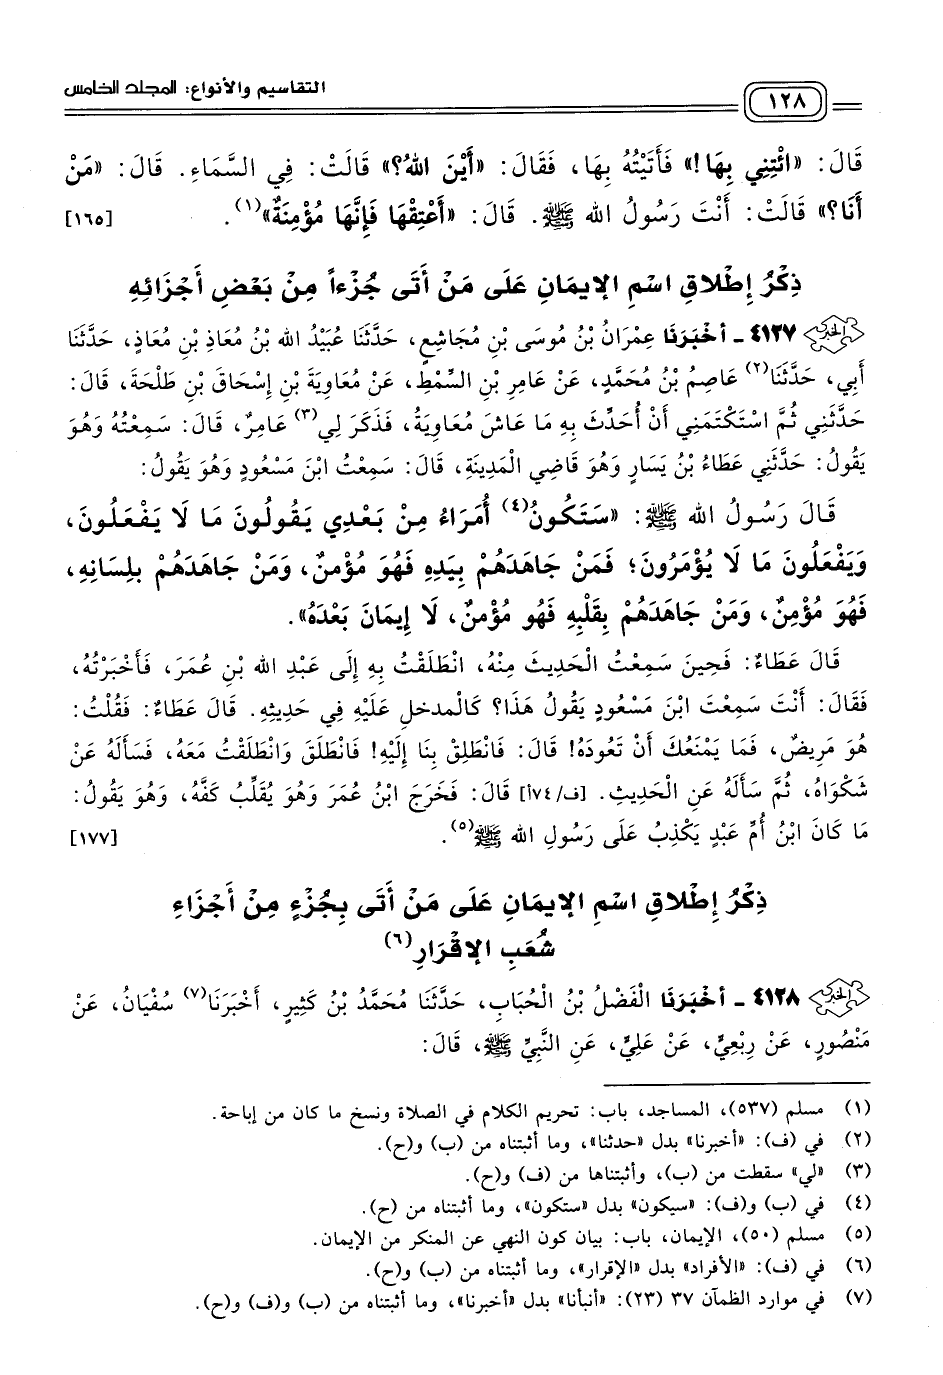 ١٢٨ التقاسيم والأنواع: المجلد الخامس
قَالَ: «ائْتِنِي بِهَا!» فَأَتَيْتُهُ بِهَا، فَقَالَ: «أَيْنَ اللهُ؟» قَالَتْ: فِي السَّمَاءِ. قَالَ: «مَنْ
أَنَا؟» قَالَتْ: أَنْتَ رَسُولُ اللهِ ﷺ. قَالَ: «أَعْتِقْهَا فَإِنَّهَا مُؤْمِنَةٌ»(١). [١٦٥]
ذِكْرُ إِطْلَاقِ اسْمِ الإِيمَانِ عَلَى مَنْ أَتَى جُزْءاً مِنْ بَعْضِ أَجْزَائِهِ
٤١٢٧ - أَخْبَرَنَا عِمْرَانُ بْنُ مُوسَى بْنِ مُجَاشِعٍ، حَدَّثَنَا عُبَيْدُ اللهِ بْنُ مُعَاذِ بْنِ مُعَاذٍ، حَدَّثَنَا
أَبِي، حَدَّثَنَا(٢) عَاصِمُ بْنُ مُحَمَّدٍ، عَنْ عَامِرِ بْنِ السِّمْطِ، عَنْ مُعَاوِيَةَ بْنِ إِسْحَاقَ بْنِ طَلْحَةَ، قَالَ:
حَدَّثَنِي ثُمَّ اسْتَكْتَمَنِي أَنْ أُحَدِّثَ بِهِ مَا عَاشَ مُعَاوِيَةُ، فَذَكَرَ لِي(٣) عَامِرٌ، قَالَ: سَمِعْتُهُ وَهُوَ
يَقُولُ: حَدَّثَنِي عَطَاءُ بْنُ يَسَارٍ وَهُوَ قَاضِي الْمَدِينَةِ، قَالَ: سَمِعْتُ ابْنَ مَسْعُودٍ وَهُوَ يَقُولُ:
قَالَ رَسُولُ اللهِ ﷺ: «سَتَكُونُ(٤) أُمَرَاءُ مِنْ بَعْدِي يَقُولُونَ مَا لَا يَفْعَلُونَ،
وَيَفْعَلُونَ مَا لَا يُؤْمَرُونَ؛ فَمَنْ جَاهَدَهُمْ بِيَدِهِ فَهُوَ مُؤْمِنٌ، وَمَنْ جَاهَدَهُمْ بِلِسَانِهِ،
فَهُوَ مُؤْمِنٌ، وَمَنْ جَاهَدَهُمْ بِقَلْبِهِ فَهُوَ مُؤْمِنٌ، لَا إِيمَانَ بَعْدَهُ».
قَالَ عَطَاءٌ: فَحِينَ سَمِعْتُ الْحَدِيثَ مِنْهُ، انْطَلَقْتُ بِهِ إِلَى عَبْدِ اللهِ بْنِ عُمَرَ، فَأَخْبَرْتُهُ،
فَقَالَ: أَنْتَ سَمِعْتَ ابْنَ مَسْعُودٍ يَقُولُ هَذَا؟ كَالْمدخلِ عَلَيْهِ فِي حَدِيثِهِ. قَالَ عَطَاءٌ: فَقُلْتُ:
هُوَ مَرِيضٌ، فَمَا يَمْنَعُكَ أَنْ تَعُودَهُ! قَالَ: فَانْطَلِقْ بِنَا إِلَيْهِ! فَانْطَلَقَ وَانْطَلَقْتُ مَعَهُ، فَسَأَلَهُ عَنْ
شَكْوَاهُ، ثُمَّ سَأَلَهُ عَنِ الْحَدِيثِ. [ف/١٧٤أ] قَالَ: فَخَرَجَ ابْنُ عُمَرَ وَهُوَ يُقَلِّبُ كَفَّهُ، وَهُوَ يَقُولُ:
مَا كَانَ ابْنُ أُمِّ عَبْدٍ يَكْذِبُ عَلَى رَسُولِ اللهِ ﷺ(٥). [١٧٧]
ذِكْرُ إِطْلَاقِ اسْمِ الإِيمَانِ عَلَى مَنْ أَتَى بِجُزْءٍ مِنْ أَجْزَاءِ
شُعَبِ الإِقْرَارِ(٦)
٤١٢٨ - أَخْبَرَنَا الْفَضْلُ بْنُ الْحُبَابِ، حَدَّثَنَا مُحَمَّدُ بْنُ كَثِيرٍ، أَخْبَرَنَا(٧) سُفْيَانُ، عَنْ
مَنْصُورٍ، عَنْ رِبْعِيٍّ، عَنْ عَلِيٍّ، عَنِ النَّبِيِّ ﷺ، قَالَ:
(١) مسلم (٥٣٧)، المساجد، باب: تحريم الكلام في الصلاة ونسخ ما كان من إباحة.
(٢) في (ف): «أخبرنا» بدل «حدثنا»، وما أثبتناه من (ب) و(ح).
(٣) «لي» سقطت من (ب)، وأثبتناها من (ف) و(ح).
(٤) في (ب) و(ف): «سيكون» بدل «ستكون»، وما أثبتناه من (ح).
(٥) مسلم (٥٠)، الإيمان، باب: بيان كون النهي عن المنكر من الإيمان.
(٦) في (ف): «الأفراد» بدل «الإقرار»، وما أثبتناه من (ب) و(ح).
(٧) في موارد الظمآن ٣٧ (٢٣): «أنبأنا» بدل «أخبرنا»، وما أثبتناه من (ب) و(ف) و(ح).